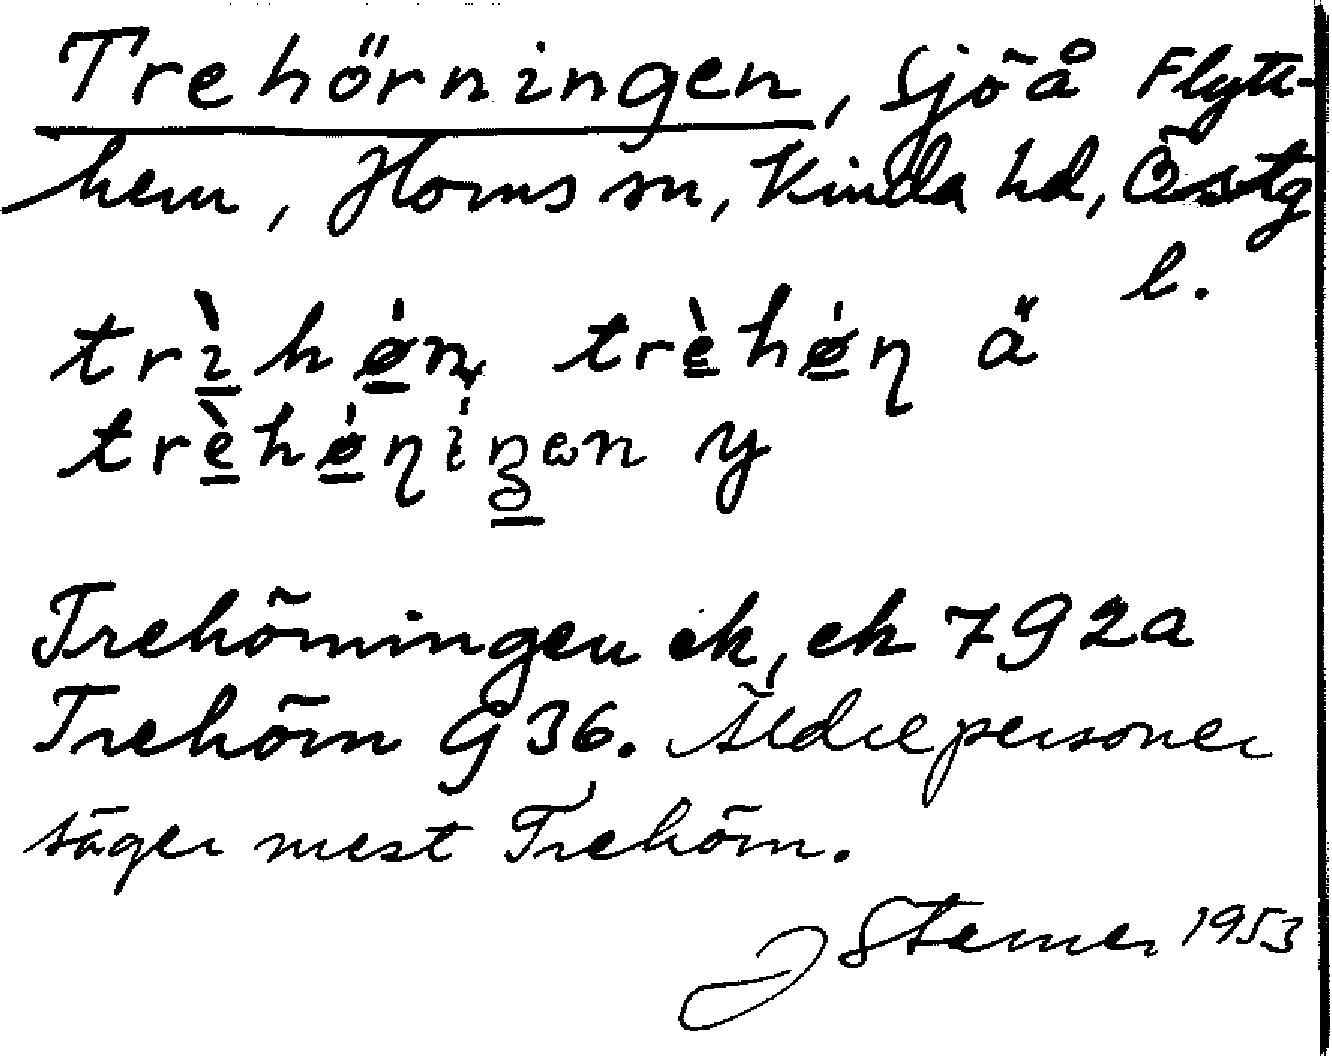 Trehörningen, Sjö å Flytt-
hem, Horns sn, Kinda hd, Östg
l.
trìhø̀n, trèhøɳ ä
trèhøɳiŋən y
Trehörningen ek, ek 792a
Trehörn G 36. Äldre personer
säger mest Trehörn.
J Sterner 1953